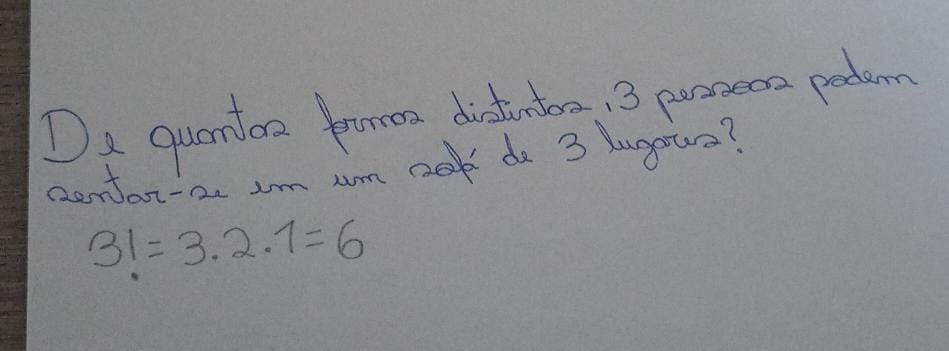 De quantas formas distintas, 3 pessoas podem
sentar-se em um sofá de 3 lugares?
3! = 3.2.1 = 6